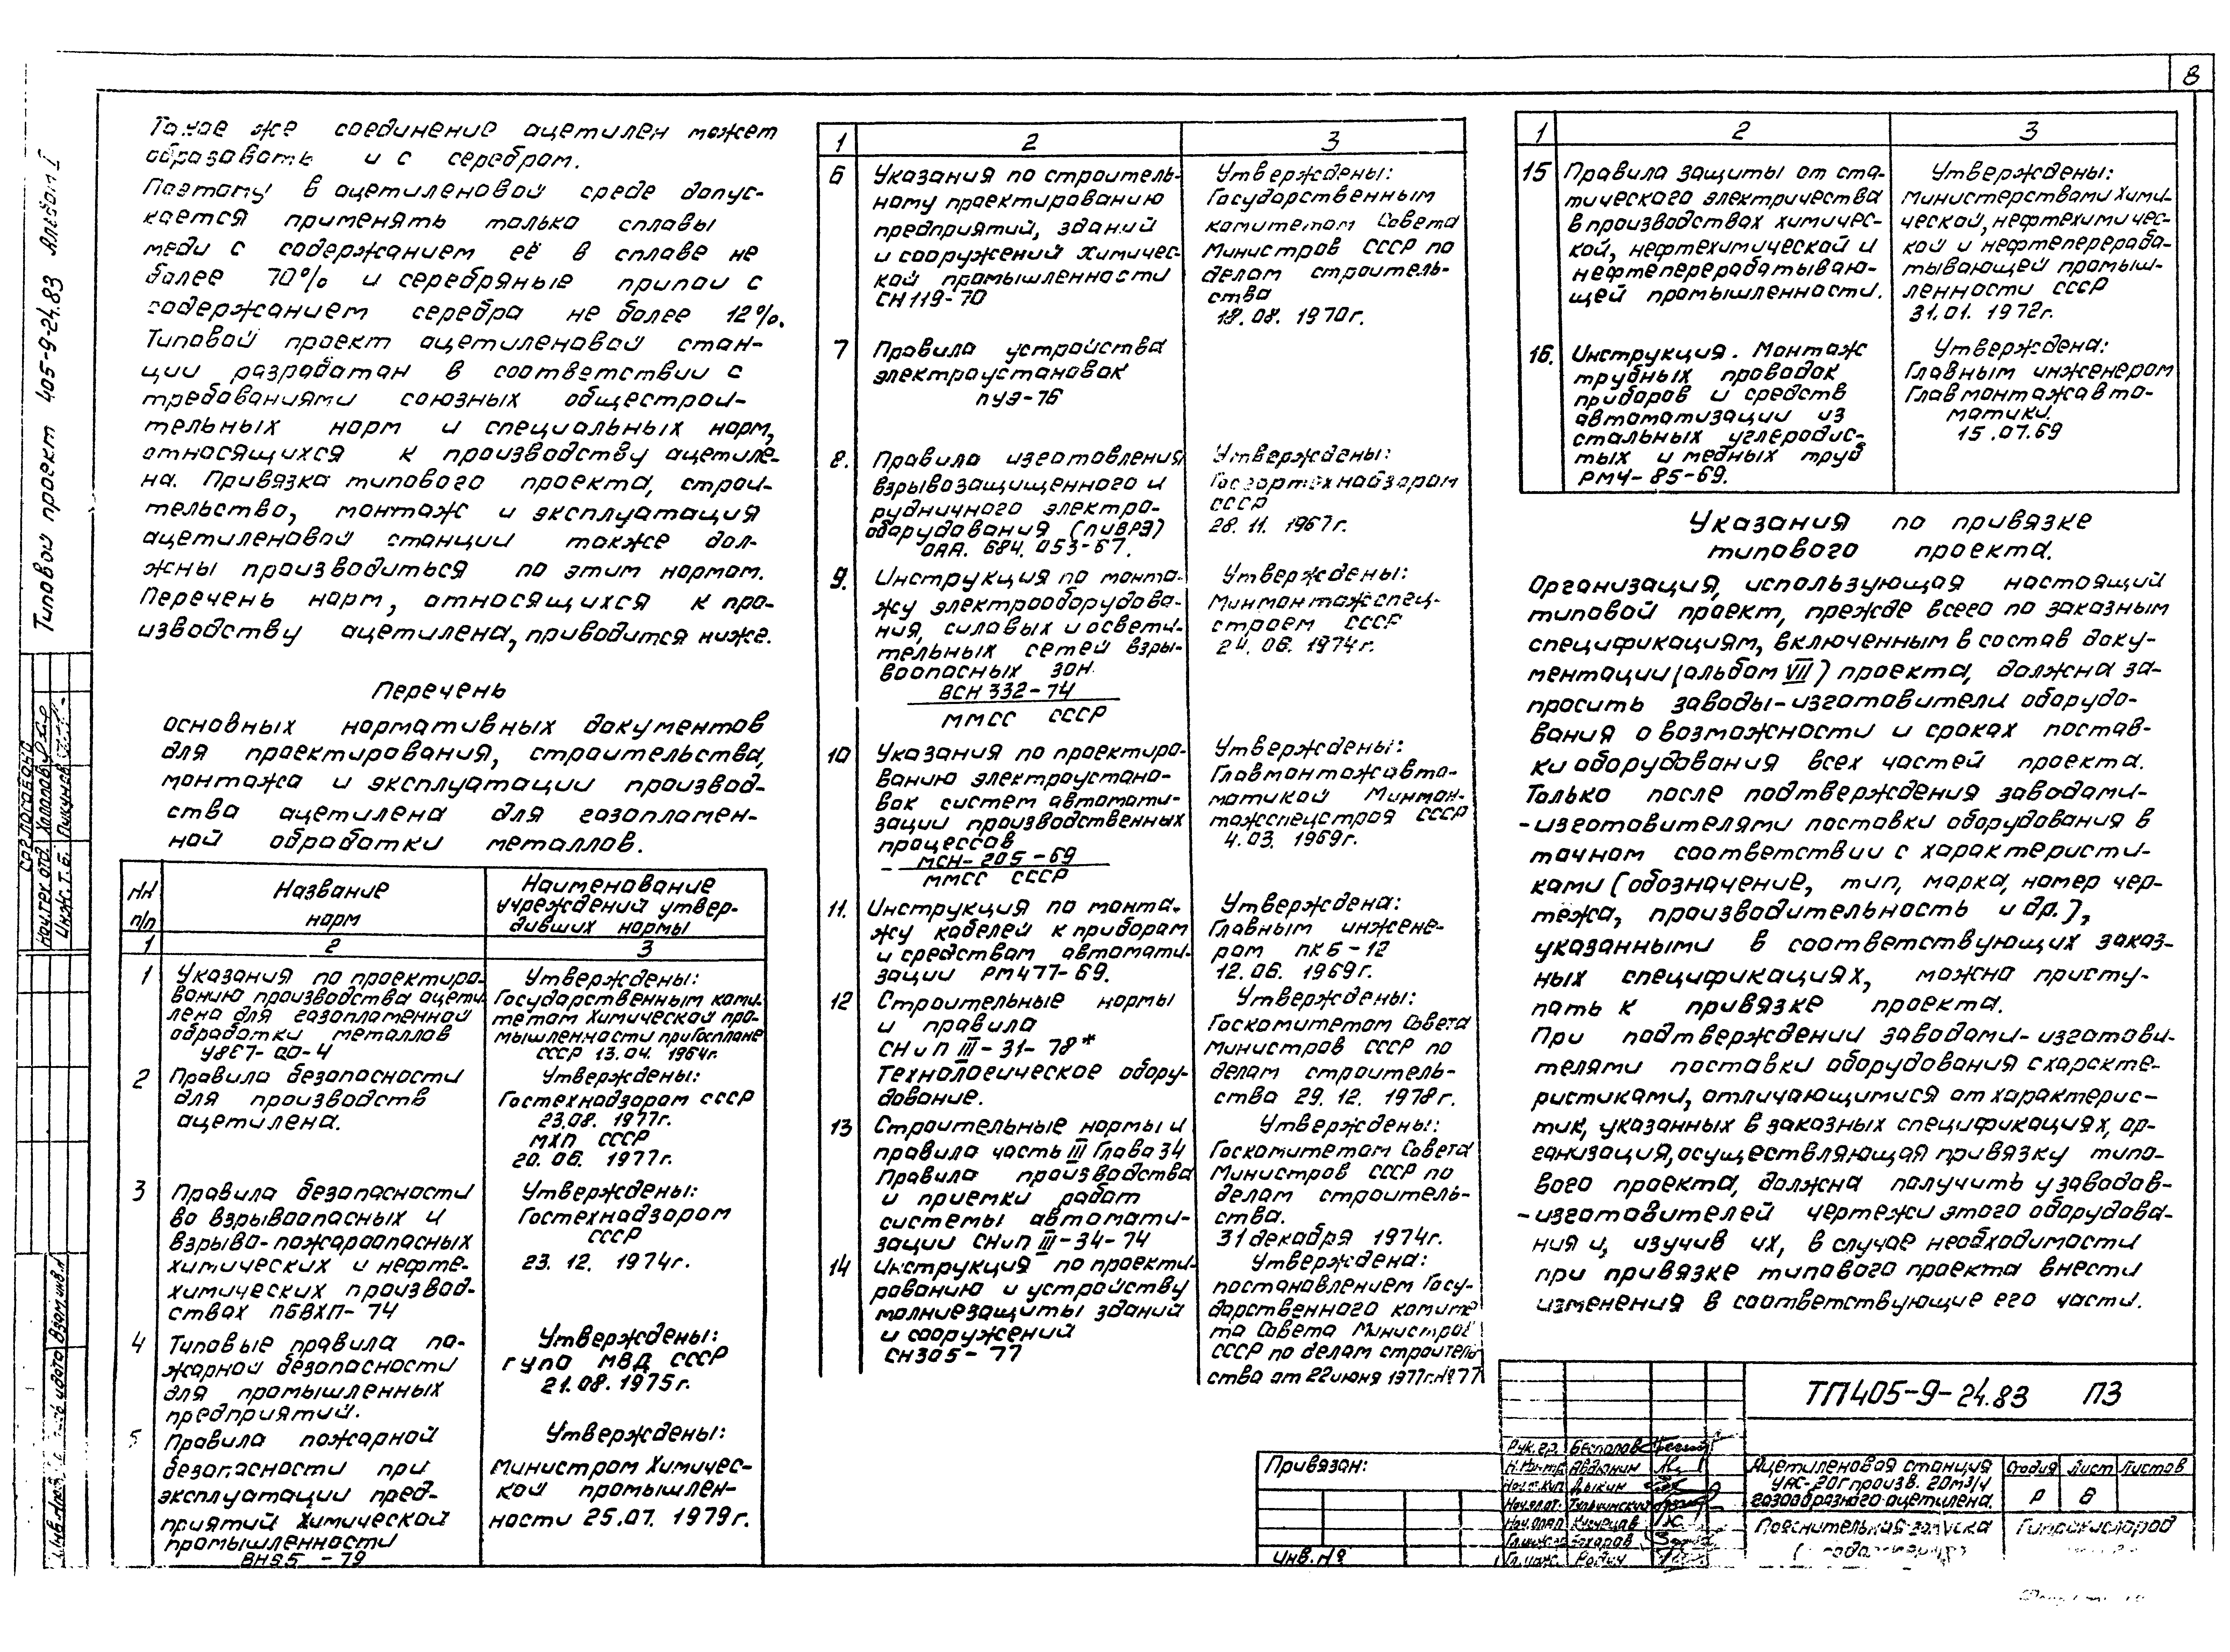 8
Типовой проект 405-9-24.83 Альбом I
Такое же соединение ацетилен может
образовать и с серебром.
Поэтому в ацетиленовой среде допус-
кается применять только сплавы
меди с содержанием её в сплаве не
более 70% и серебряные припои с
содержанием серебра не более 12%.
Типовой проект ацетиленовой стан-
ции разработан в соответствии с
требованиями союзных общестрои-
тельных норм и специальных норм,
относящихся к производству ацетиле-
на. Привязка типового проекта, строи-
тельство, монтаж и эксплуатация
ацетиленовой станции также дол-
жны производиться по этим нормам.
Перечень норм, относящихся к про-
изводству ацетилена, приводится ниже.
Перечень
основных нормативных документов
для проектирования, строительства,
монтажа и эксплуатации производ-
ства ацетилена для газопламен-
ной обработки металлов.
НН п/п
Название
норм
Наименование
учреждений утвер-
дивших нормы
1 2 3
1 Указания по проектиро-
ванию производства ацети-
лена для газопламенной
обработки металлов
У867-00-4
Утверждены:
Государственным коми-
тетом Химической про-
мышленности при Госплане
СССР 13.04. 1964г.
2 Правила безопасности
для производств
ацетилена.
Утверждены:
Гостехнадзором СССР
23.08. 1977г.
МХП СССР
20.06. 1977г.
3 Правила безопасности
во взрывоопасных и
взрыво-пожароопасных
химических и нефте-
химических производ-
ствах ПБВХП-74
Утверждены:
Гостехнадзором
СССР
23. 12. 1974г.
4 Типовые правила по-
жарной безопасности
для промышленных
предприятий.
Утверждены:
ГУПО МВД СССР
21.08. 1975г.
5 Правила пожарной
безопасности при
эксплуатации пред-
приятий Химической
промышленности
ВНЭ5 -79
Утверждены:
Министром Химичес-
кой промышлен-
ности 25.07. 1979г.
1 2 3
6 Указания по строитель-
ному проектированию
предприятий, зданий
и сооружений химичес-
кой промышленности
СН119-70
Утверждены:
Государственным
комитетом Совета
Министров СССР по
делам строитель-
ства
18.08. 1970г.
7 Правила устройства
электроустановок
ПУЭ-76
8. Правила изготовления
взрывозащищенного и
рудничного электро-
оборудования (ПИВРЭ)
ОАА. 684. 053-67.
Утверждены:
Госгортехнадзором
СССР
28. 11. 1967г.
9. Инструкция по монта-
жу электрооборудова-
ния, силовых и освети-
тельных сетей взры-
воопасных зон.
ВСН 332-74
ММСС СССР
Утверждены:
Минмонтажспец-
строем СССР
24. 06. 1974г.
10 Указания по проектиро-
ванию электроустано-
вок систем автомати-
зации производственных
процессов
МСН-205-69
ММСС СССР
Утверждены:
Главмонтажавто-
матикой Минмон-
тажспецстроя СССР
4.03. 1969г.
11. Инструкция по монта-
жу кабелей к приборам
и средствам автомати-
зации РМ477-69.
Утверждена:
Главным инжене-
ром ПКБ-12
12.06. 1969г.
12 Строительные нормы
и правила
СНиП III-31-78*
Технологическое обору-
дование.
Утверждены:
Госкомитетом Совета
Министров СССР по
делам строитель-
ства 29. 12. 1978г.
13 Строительные нормы и
правила часть III Глава 34
Правила производства
и приемки работ
системы автомати-
зации СНиП III-34-74
Утверждены:
Госкомитетом Совета
Министров СССР по
делам строитель-
ства.
31 декабря 1974г.
14 Инструкция по проекти-
рованию и устройству
молниезащиты зданий
и сооружений
СН305-77
Утверждена:
постановлением Госу-
дарственного комите
та Совета Министров
СССР по делам строитель
ства от 22 июня 1977г.№77
1 2 3
15 Правила защиты от ста-
тического электричества
в производствах химичес-
кой, нефтехимической и
нефтеперерабатываю-
щей промышленности.
Утверждены:
Министерствами Хими-
ческой, нефтехимичес-
кой и нефтеперераба-
тывающей промыш-
ленности СССР
31.01. 1972г.
16. Инструкция. Монтаж
трубных проводок
приборов и средств
автоматизации из
стальных углеродис-
тых и медных труб
РМ4-85-69.
Утверждена:
Главным инженером
Главмонтажавто-
матики.
15.07.69
Указания по привязке
типового проекта.
Организация, использующая настоящий
типовой проект, прежде всего по заказным
спецификациям, включенным в состав доку-
ментации (альбом VII) проекта, должна за-
просить заводы-изготовители оборудо-
вания о возможности и сроках постав-
ки оборудования всех частей проекта.
Только после подтверждения заводами-
-изготовителями поставки оборудования в
точном соответствии с характеристи-
ками (обозначение, тип, марка, номер чер-
тежа, производительность и др.),
указанными в соответствующих заказ-
ных спецификациях, можно присту-
пать к привязке проекта.
При подтверждении заводами-изготови-
телями поставки оборудования с характе-
ристиками, отличающимися от характерис-
тик, указанных в заказных спецификациях, ор-
ганизация, осуществляющая привязку типо-
вого проекта, должна получить у заводов-
-изготовителей чертежи этого оборудова-
ния и, изучив их, в случае необходимости
при привязке типового проекта внести
изменения в соответствующие его части.
Привязан:
Инв.№
ТП405-9-24.83 ПЗ
Рук.гр. Беспалов
Н.контр Авдюнин
Дыкин
Тульчинский
Нач.ОПАП Кузнецов
Захаров
Родич
Ацетиленовая станция
УАС-20Г произв. 20м3/ч
газообразного ацетилена.
Стадия Лист Листов
Р 8
Пояснительная записка
Гипрокислород
Согласовано
Нач.тех.отд. Холопов
Инж. Т.Б. Пищунов
Взам.инв.№